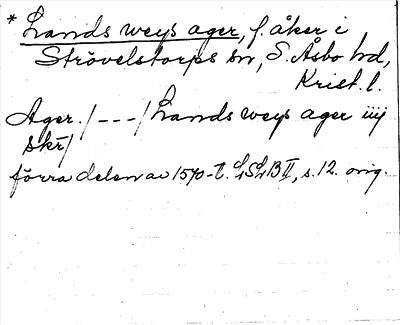 * Lands weys ager, f. åker i
Strövelstorps sn, S. Åsbo hd,
Krist. l.
Ager. / --- / Lands weys ager iiij
skr /
förra delen av 1570-t. LSLB II, s. 12. orig.